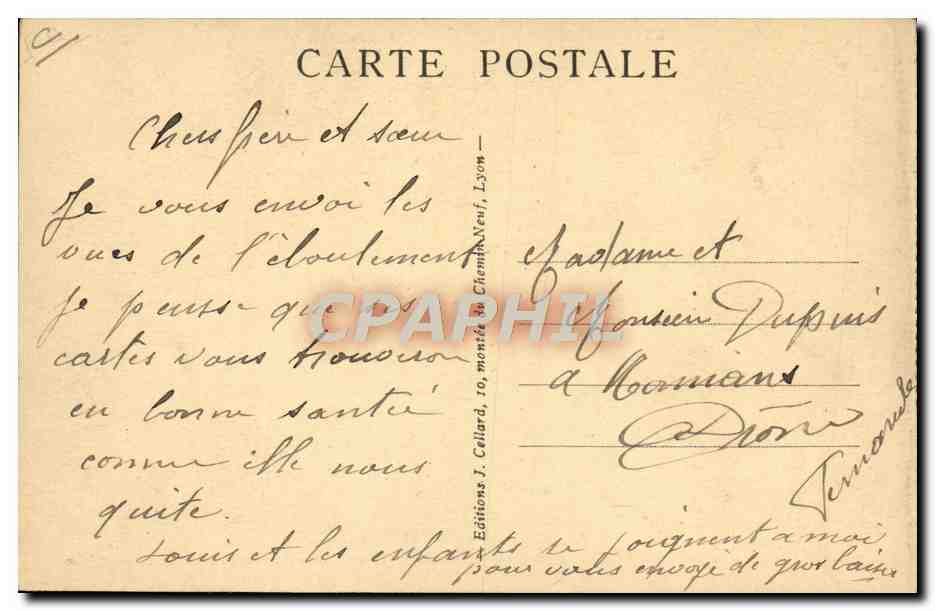 CARTE POSTALE
Chers frère et sœur
Je vous envoi les
vues de l'éboulement
Je pense que ses
cartes vous trouveron
en bonne santée
comme ille nous
quite.
Louis et les enfants se joignent a moi
pour vous envoye de gros baiser
Fernande
Editions J. Cellard, 10, montée du Chemin Neuf, Lyon —
Madame et
Monsieur Dupuis
a Romans
Drôme
CPAPHIL